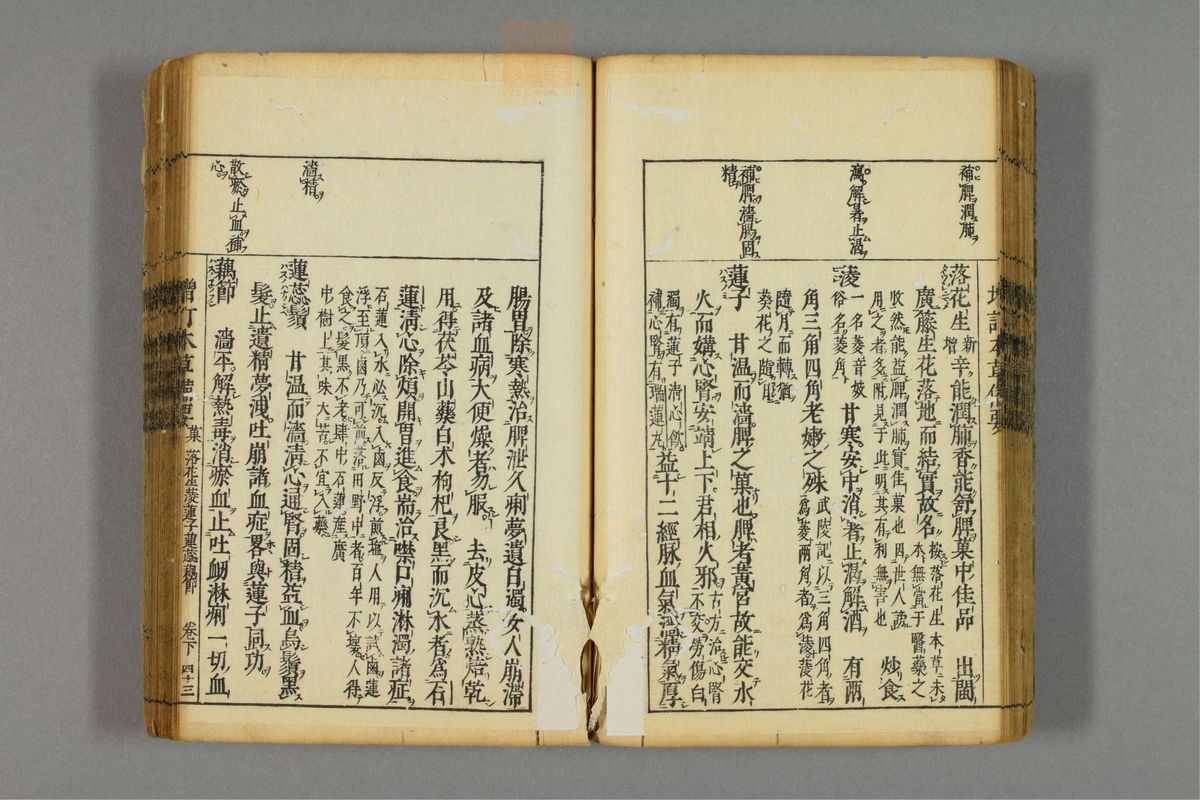 補脾潤肺
瀉解暑止渴
補脾濇腸固
精
落花生新增辛能潤肺香能舒脾菓中佳品 出閩
廣藤生花落地而結實故名按落花生本草未
收然能益脾潤肺實佳菓也因世人誤
用之者多附見于此明其有利無害也 炒食
蔆一名菱音妓
俗名菱角 甘寒安中消暑止渴解酒 有兩
角三角四角老嫩之殊武陵記以三角四角者
爲芰兩角者爲蔆蔆花
隨月而轉猶
葵花之隨日
蓮子 甘温而濇脾之菓也脾者黃宮故能交水
火而媾心腎安靖上下君相火邪古方治心腎
不交勞傷白
濁有蓮子清心飲
補心腎有瑞蓮丸益十二經脉血氣濇精氣厚
濇精
散瘀止血補
心
腸胃除寒熱治脾泄久痢夢遺白濁女人崩滯
及諸血病大便燥者勿服 去皮心蒸熟焙乾
用得茯苓山藥白术枸杞良黑而沉水者爲石
蓮清心除煩開胃進食耑治噤口痢淋濁諸症
石蓮入水必沉入鹵反浮煎鹽人用以試鹵蓮
浮至頂鹵乃可煎落田野中者百年不壞人得
食之髮黑不老肆中石蓮產廣
中樹上其味大苦不宜入藥
蓮蕊鬚 甘温而濇清心通腎固精益血烏鬚黑
髮止遺精夢洩吐崩諸血症畧與蓮子同功
藕節 濇平解熱毒消瘀血止吐衄淋痢一切血
菓 落花生蔆蓮子蓮蕊藕節 卷下 四十三